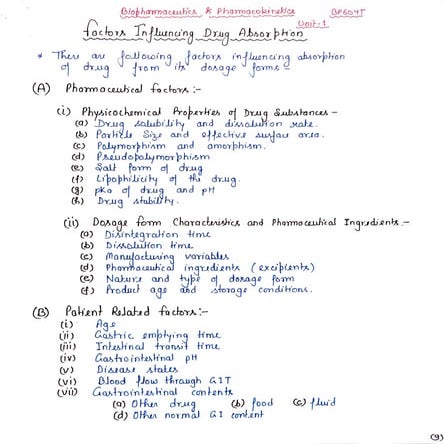 Biopharmaceutics & Pharmacokinetics BP604T
Unit-1
Factors Influencing Drug Absorption
* There are following factors influencing absorption
of drug from its dosage forms
(A) Pharmaceutical factors :-
(i) Physicochemical Properties of Drug Substances -
(a) Drug solubility and dissolution rate.
(b) Particle Size and effective surface area.
(c) Polymorphism and amorphism.
(d) Pseudopolymorphism
(e) Salt form of drug
(f) Lipophilicity of the drug.
(g) pka of drug and pH
(h) Drug stability.
(ii) Dosage form Characteristics and Pharmaceutical Ingredients :-
(a) Disintegration time
(b) Dissolution time
(c) Manufacturing variables
(d) Pharmaceutical ingredients (excipients)
(e) Nature and type of dosage form
(f) Product age and storage conditions.
(B) Patient Related factors :-
(i) Age
(ii) Gastric emptying time
(iii) Intestinal transit time
(iv) Gastrointestinal pH
(v) Disease states
(vi) Blood flow through GIT
(vii) Gastrointestinal contents
(a) Other drug (b) food (c) fluid
(d) Other normal GI content